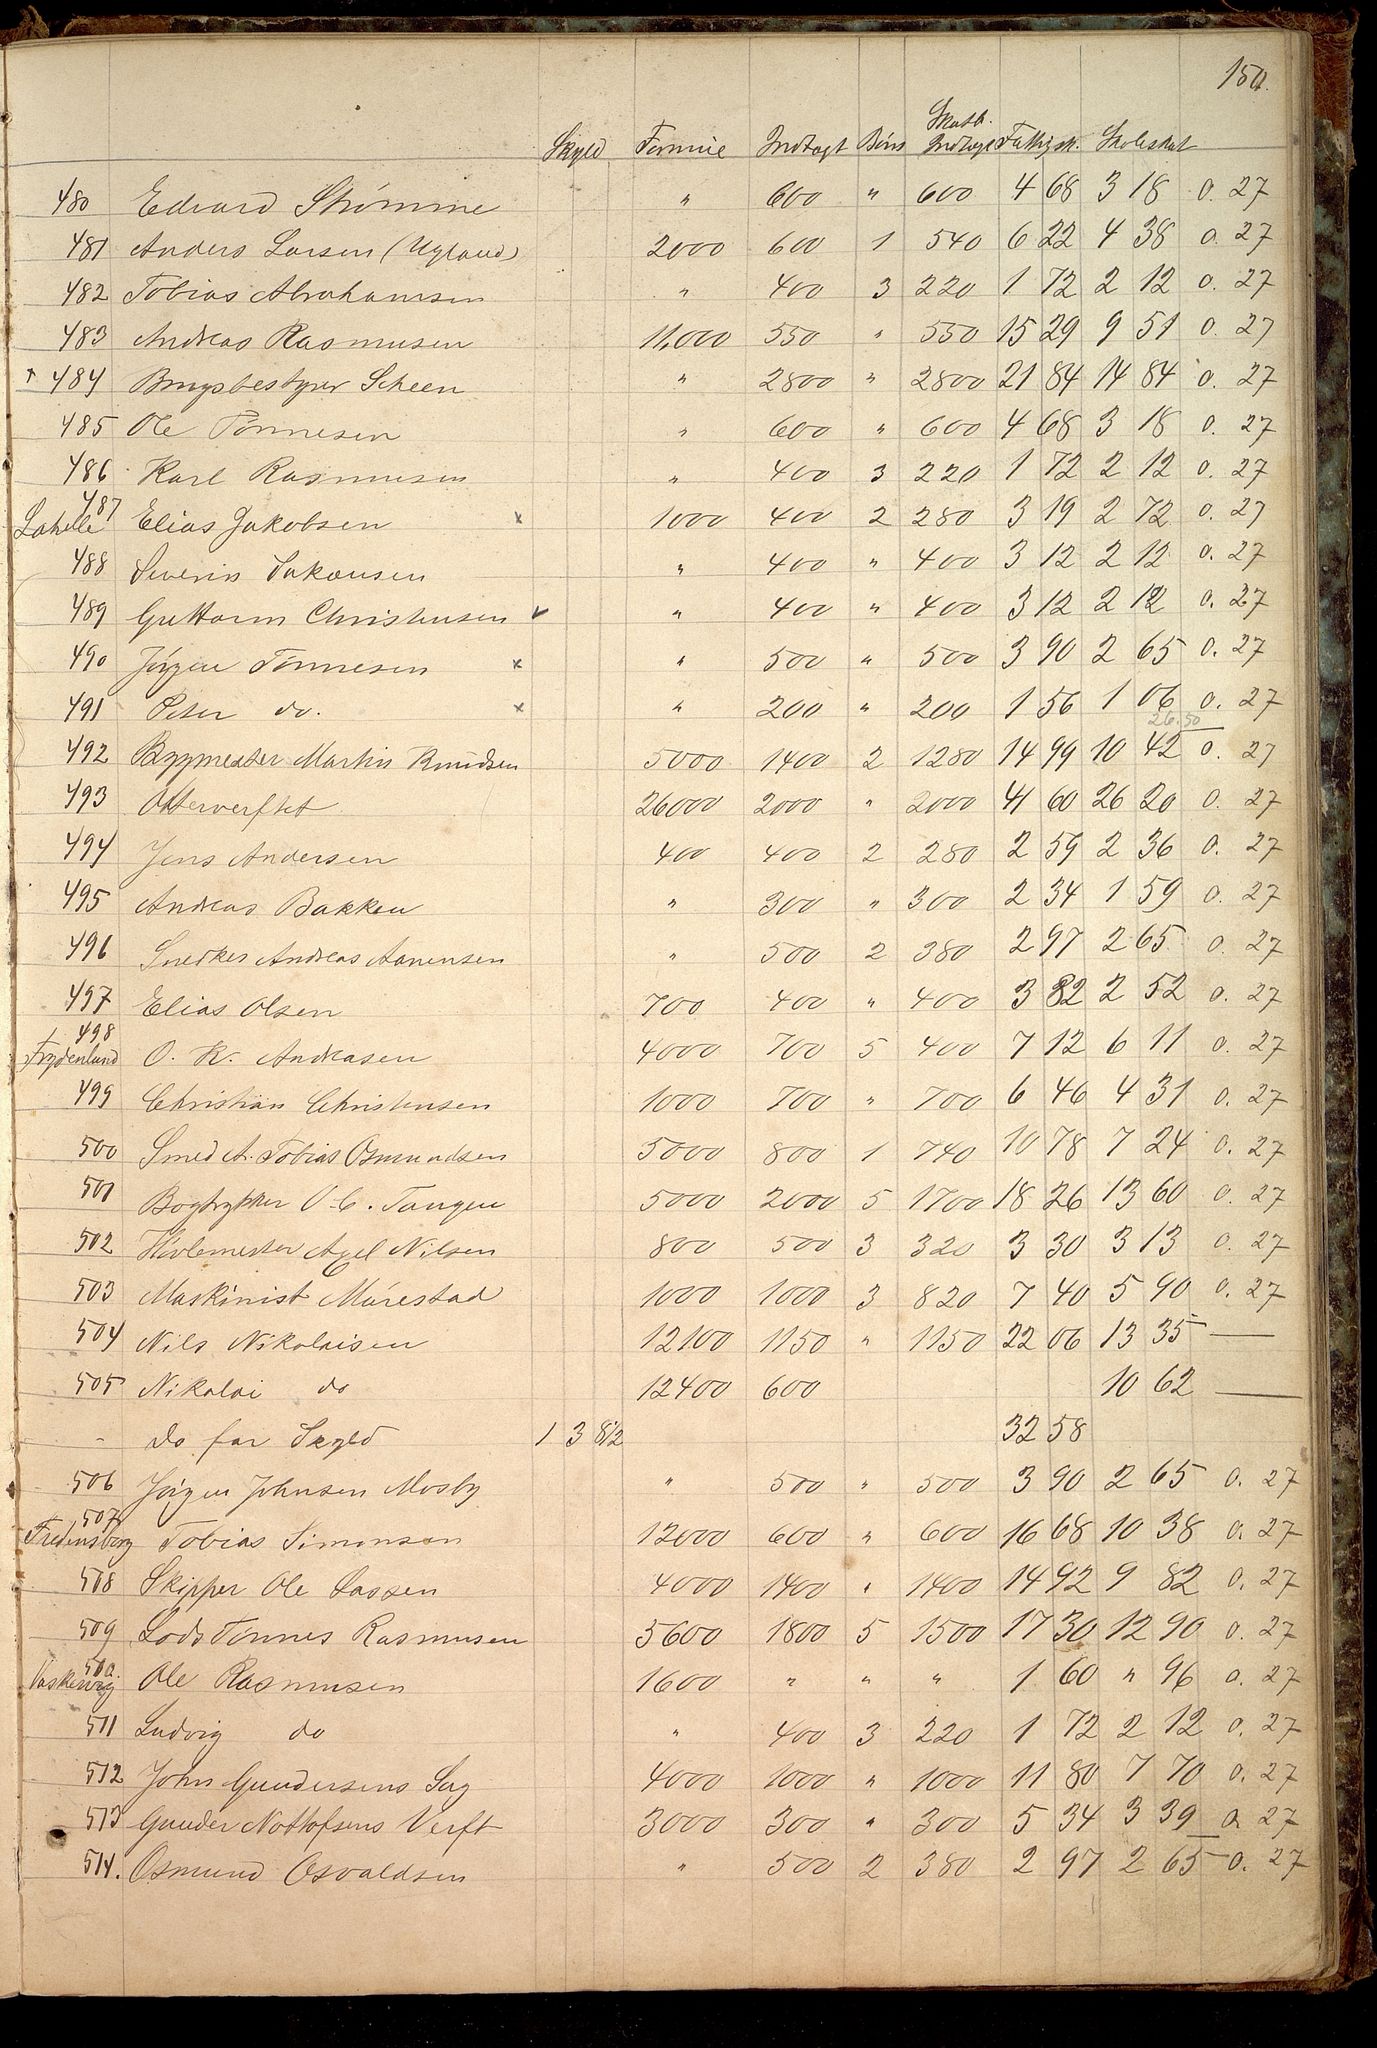 150.
Skyld Formue Indtægt Børn Skatb. Indtægt Fattigsk. Skoleskat
480 Edvard Strømme " 600 " 600 4 68 3 18 0. 27
481 Anders Larsen (Ugland) 2000 600 1 540 6 22 4 38 0. 27
482 Tobias Abrahamsen " 400 3 220 1 72 2 12 0. 27
483 Andreas Rasmusen 11,000 550 " 550 15 29 9 51 0. 27
484 Brugsbestyrer Scheen " 2800 " 2800 21 84 14 84 0. 27
485 Ole Tønnesen " 600 " 600 4 68 3 18 0. 27
486 Karl Rasmusen " 400 3 220 1 72 2 12 0. 27
487 Lahelle Elias Jakobsen x 1000 400 2 280 3 19 2 72 0. 27
488 Severin Isaksen " 400 " 400 3 12 2 12 0. 27
489 Guttorm Christensen " 400 " 400 3 12 2 12 0. 27
490 Jørgen Tønnesen x " 500 " 500 3 90 2 65 0. 27
491 Peter do. x " 200 " 200 1 56 1 06 0. 27
26.50
492 Byggmester Martin Knudsen 5000 1400 2 1280 14 99 10 42 0. 27
493 Otterverftet 26000 2000 " 2000 41 60 26 20 0. 27
494 Jens Andersen 400 400 2 280 2 59 2 36 0. 27
495 Andreas Bakken " 300 " 300 2 34 1 59 0. 27
496 Snedker Andreas Aanensen " 500 2 380 2 97 2 65 0. 27
497 Elias Olsen 700 400 " 400 3 82 2 52 0. 27
498 Frydenlund O. K. Andreasen 4000 700 5 400 7 12 6 11 0. 27
499 Christian Christensen 1000 700 " 700 6 46 4 31 0. 27
500 Smed A. Tobias Osmundsen 5000 800 1 740 10 78 7 24 0. 27
501 Bogtrykker O. C. Tangen 5000 2000 5 1700 18 26 13 60 0. 27
502 Høvlemester Axel Nilsen 800 500 3 320 3 30 3 13 0. 27
503 Maskinist Mürestad 1000 1000 3 820 7 40 5 90 0. 27
504 Nils Nikolaisen 12100 1150 " 1150 22 06 13 35 —
505 Nikolai do 12400 600 10 62 —
- do for Skyld 1 3 8 1/2 32 58
506 Jørgen Johnsen Mosby " 500 " 500 3 90 2 65 0. 27
507 Fredensborg Tobias Simonsen 12000 600 " 600 16 68 10 38 0. 27
508 Skipper Ole Lassen 4000 1400 " 1400 14 92 9 82 0. 27
509 Lods Tønnes Rasmusen 5600 1800 5 1500 17 30 12 90 0. 27
510. Ole Rasmusen 1600 " " " 1 60 " 96 0. 27
511 Ludvig do " 400 3 220 1 72 2 12 0. 27
512 John Gundersens Sag 4000 1000 " 1000 11 80 7 70 0. 27
513 Gunder Nottofsens Verft 3000 300 " 300 5 34 3 39 0 27
514. Osmund Osvaldsen " 500 2 380 2 97 2 65 0. 27